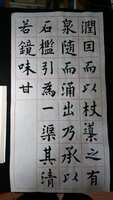 潤因而以杖導之有
泉隨而涌出乃承以
石檻引為一渠其清
若鏡味甘